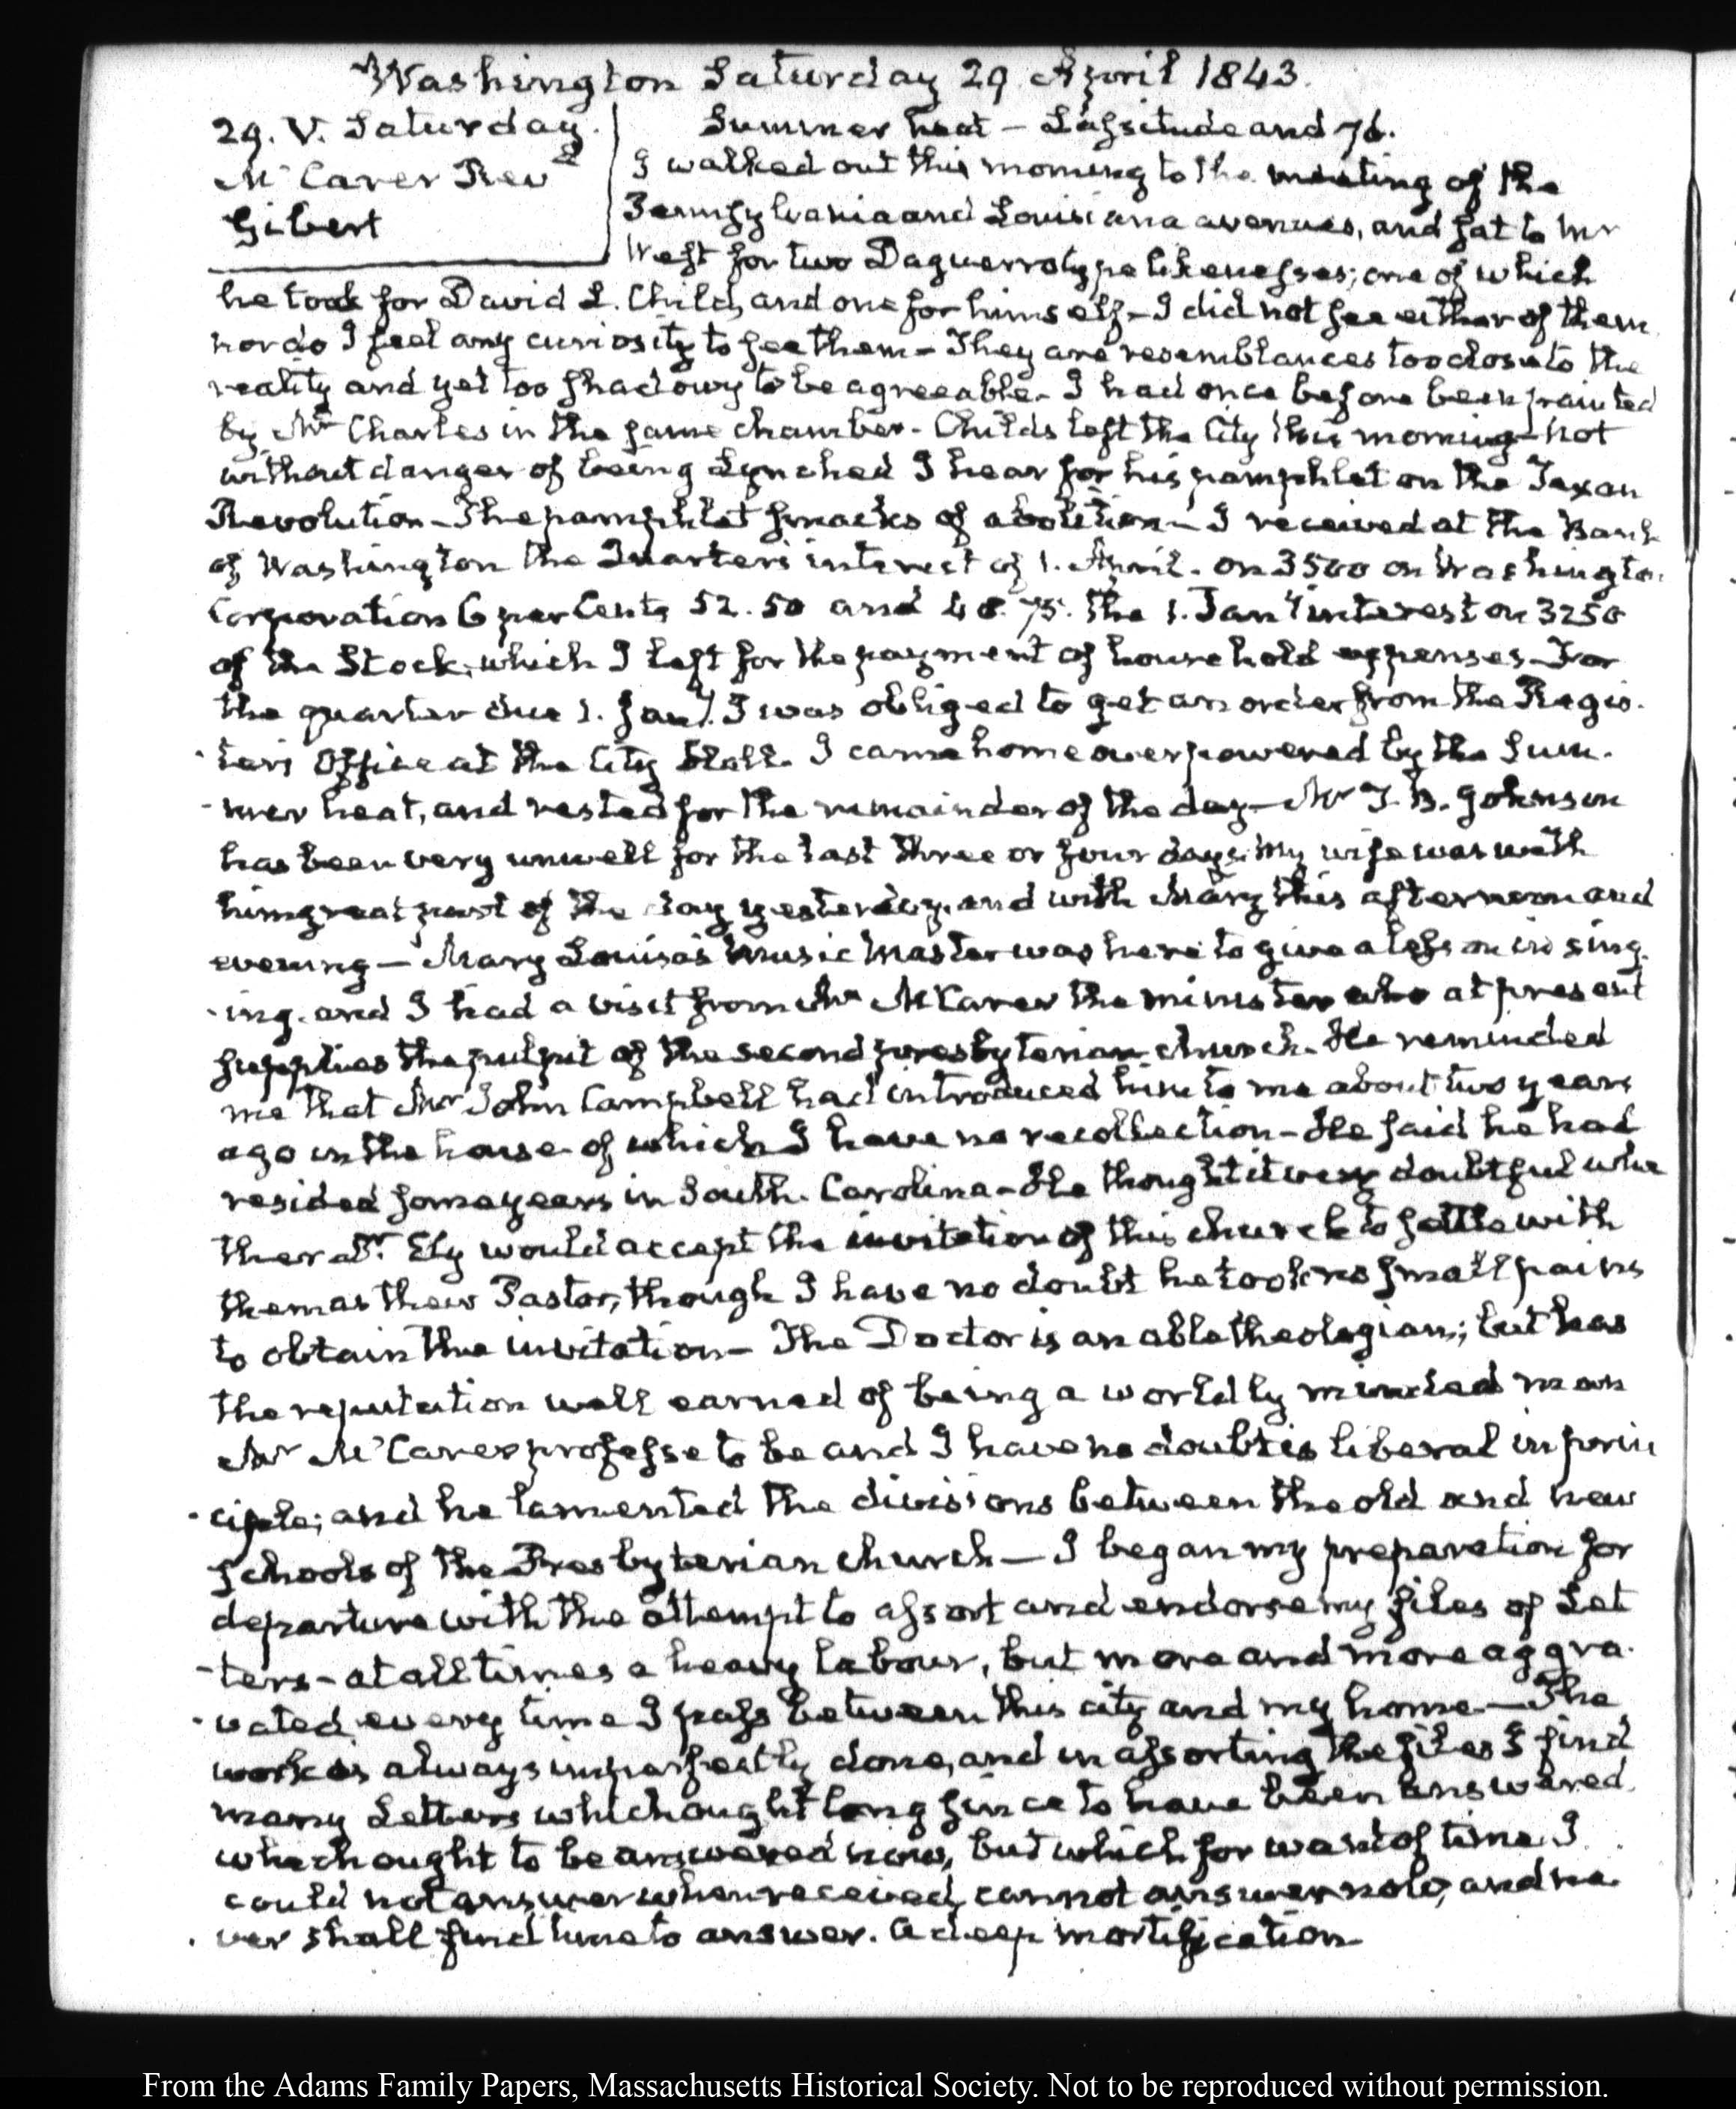 Washington Saturday 29. April 1843.
29. V. Saturday.
McCarer Revd
Gilbert
Summer heat – Lassitude and 76.
I walked out this morning to the meeting of the
Pennsylvania and Louisiana avenues, and sat to Mr
West for two Daguerrotype likenesses; one of which
he took for David L. Child, and one for himself – I did not see either of them
nor do I feel any curiosity to see them – They are resemblances too close to the
reality and yet too shadowy to be agreeable. I had once before been painted
by Mr Charles in the same chamber. Childs left the City this morning – not
without danger of being Lynched I hear for his pamphlet on the Texan
Revolution – The pamphlet smacks of abolition – I received at the Bank
of Washington the Quarter's interest of 1. April. on 3500 on Washington
Corporation 6 per Cents 52.50 and 48.75. the 1. Jany interest on 3250
of the Stock, which I left for the payment of household expenses – For
the quarter due 1. Jany. I was obliged to get an order from the Regis-
-ters Office at the City Hall. I came home overpowered by the Sum-
-mer heat, and rested for the remainder of the day – Mr T. B. Johnson
has been very unwell for the last three or four days: my wife was with
him great part of the day yesterday, and with Mary this afternoon and
evening – Mary Louisa's Music Master was here to give a lesson in sing-
-ing. and I had a visit from Mr McCarer the minister who at present
supplies the pulpit of the second presbyterian church. He reminded
me that Mr John Campbell had introduced him to me about two years
ago in the house of which I have no recollection – He said he had
resided some years in South. Carolina – He thought it very doubtful whe
ther Dr. Ely would accept the invitation of this church to settle with
them as their Pastor, though I have no doubt he took no small pains
to obtain the invitation – The Doctor is an able theologian; but has
the reputation well earned of being a worldly minded man
Mr McCarer professe to be and I have no doubt is liberal in prin
-ciple; and he lamented the divisions between the old and new
schools of the Presbyterian church – I began my preparation for
departure with the attempt to assort and endorse my files of Let
-ters – at all times a heavy labour, but more and more aggra-
-vated every time I pass between this city and my home – The
work is always imperfectly done, and in assorting the files I find
many Letters which ought long since to have been answered.
which ought to be answered now, but which for want of time I
could not answer when received, cannot answer now, and ne-
-ver shall find time to answer. A deep mortification
From the Adams Family Papers, Massachusetts Historical Society. Not to be reproduced without permission.